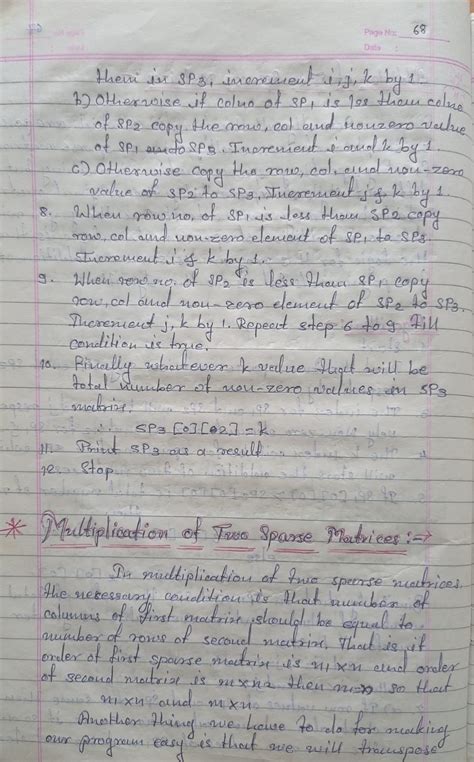 Page No: 68
Date :
them in SP3, increment i, j, k by 1.
b) Otherwise if colno of SP1 is less than colno
of SP2 copy the row, col and nonzero value
of SP1 into SP3. Increment i and k by 1.
c) Otherwise copy the row, col. and non-zero
value of SP2 to SP3, Increment j & k by 1.
8. When row no. of SP1 is less than SP2 copy
row, col. and non-zero element of SP1 to SP3
Increment i & k by 1.
9. When row no. of SP2 is less than SP1 copy
row, col and non-zero element of SP2 to SP3.
Increment j, k by 1. Repeat step 6 to 9 till
condition is true.
10. Finally whatever k value that will be
total number of non-zero values in SP3
matrix.
SP3 [0][2] = k
11. Print SP3 as a result
12. Stop
* Multiplication of Two Sparse Matrices :→
In multiplication of two sparse matrices
the necessary condition is that number of
columns of first matrix should be equal to
number of rows of second matrix. That is if
order of first sparse matrix is n1 x n and order
of second matrix is m x n2 then so that
n1 x n and m x n
Another thing we have to do for making
our program easy is that we will transpose